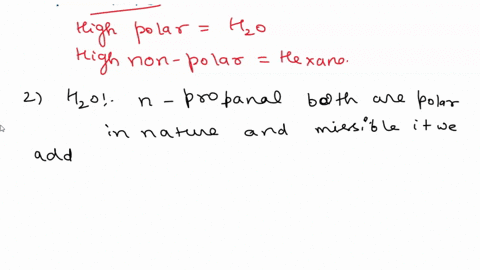 High polar = H₂O
High non-polar = Hexane.
2) H₂O:. n-propanal both are polar
in nature and missible if we
add